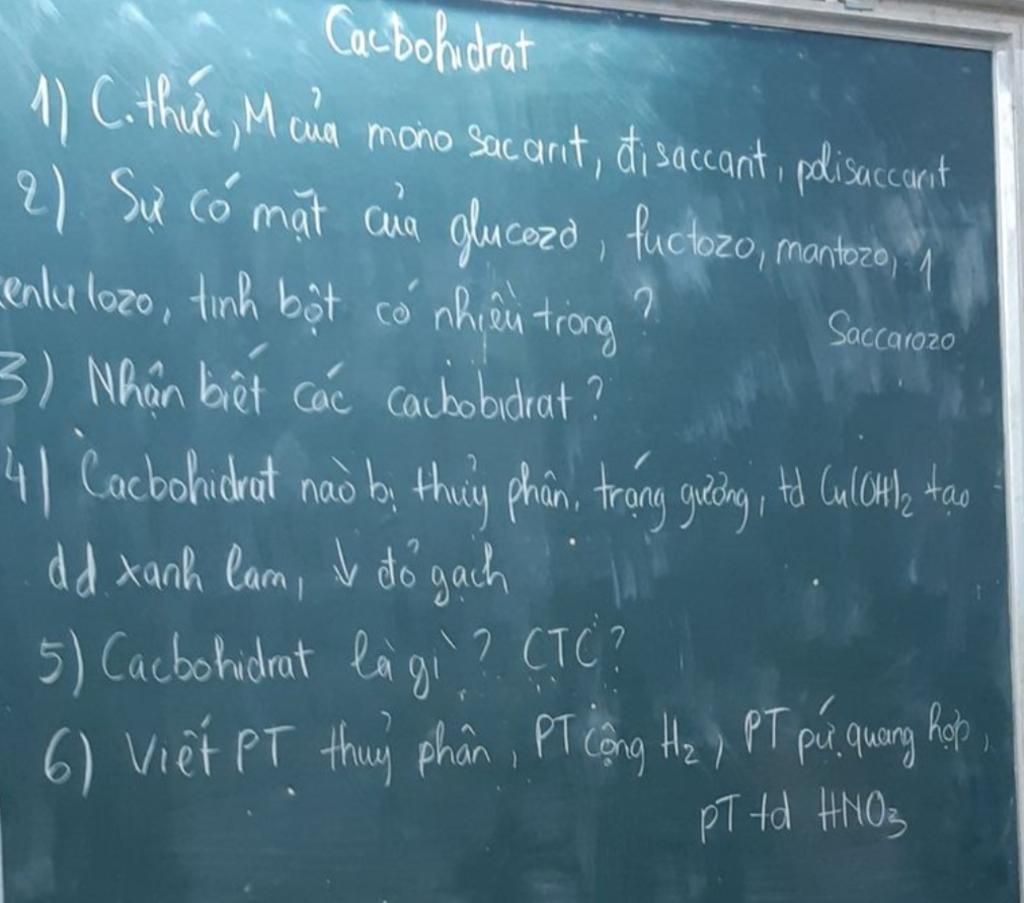 Cacbohidrat
1) C.thức, M của mono sacarit, đisaccarit, polisaccarit
2) Sự có mặt của glucozơ, fuctozo, mantozo, 1
xenlulozo, tinh bột có nhiều trong ?
Saccarozo
3) Nhận biết các cacbobidrat?
4) Cacbohidrat nào bị thủy phân, tráng gương, td Cu(OH)2 tạo
dd xanh lam, ↓ đỏ gạch
5) Cacbohidrat là gì? CTC?
6) Viết PT thuỷ phân, PT cộng H2, PT pứ quang hợp,
pT td HNO3